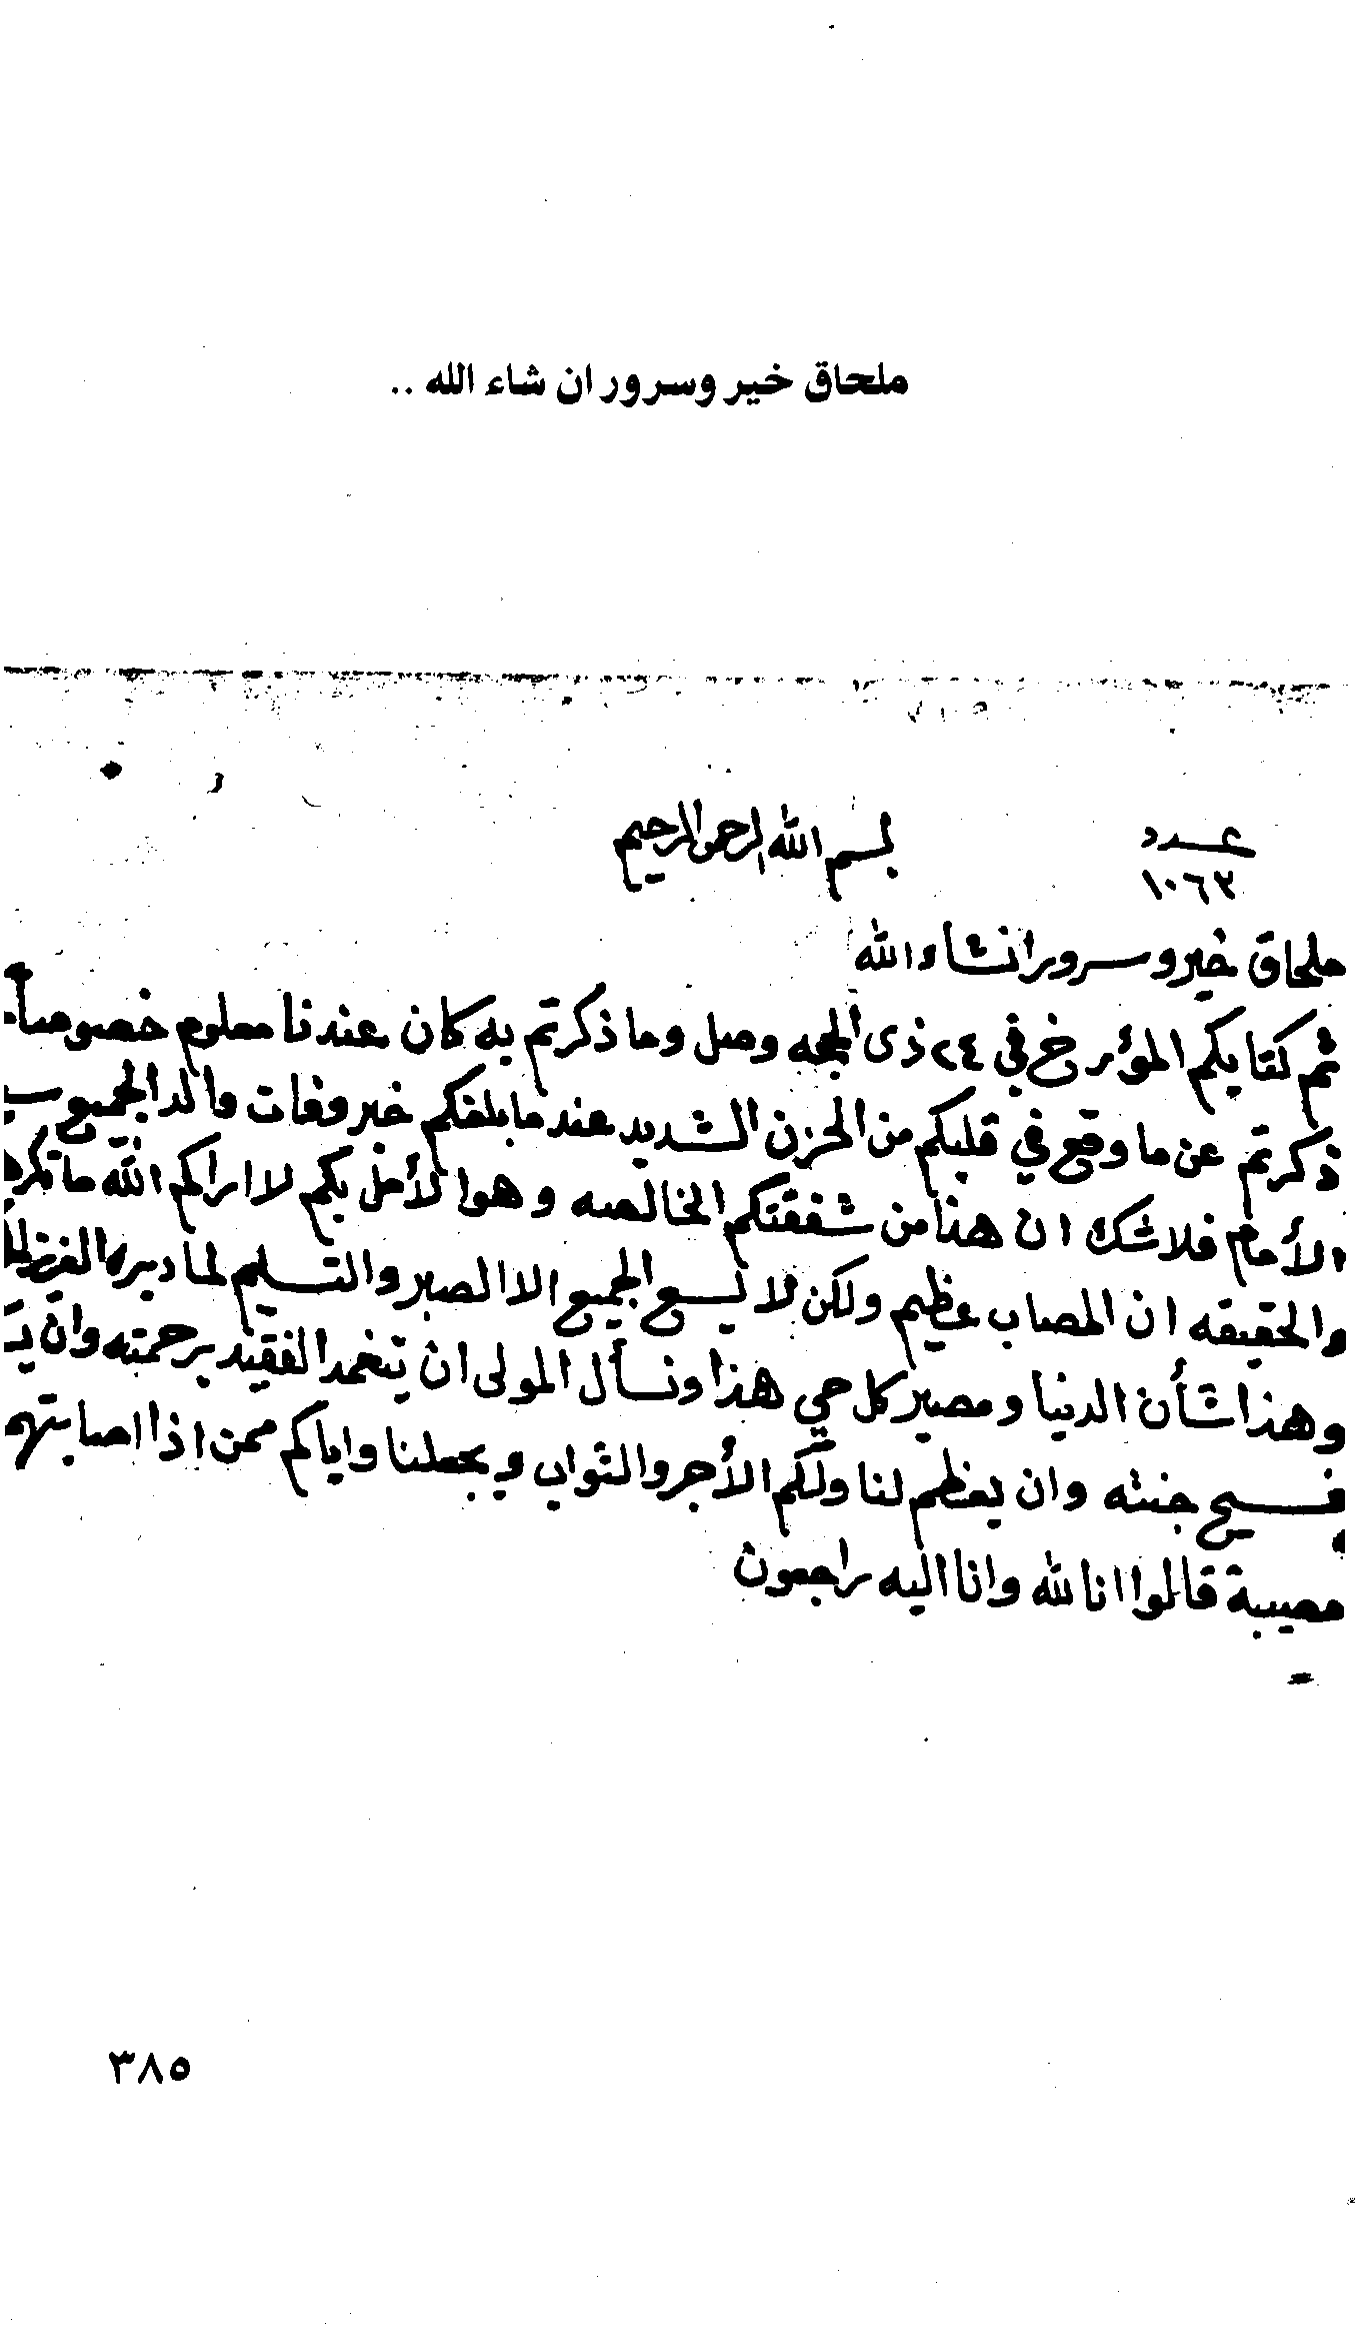 ملحاق خير وسرور ان شاء الله ..
بسم الله الرحمن الرحيم
عدد
١٠٦٣
ملحاق خير وسرور انشاء الله
ثم كتابكم المؤرخ في ٢٤ ذى الحجه وصل وما ذكرتم به كان عندنا معلوم خصوصاً
ذكرتم عن ما وقع في قلبكم من الحزن الشديد عندما بلغكم خبر وفات والد الجميع
الأمام فلاشك ان هذا من شفقتكم الخالصه وهو الأمل بكم لا اراكم الله ما تكرهو
والحقيقه ان المصاب عظيم ولكن فلا يسع الجميع الا الصبر والتسليم لما دبره العزيز
وهذا شأن الدنيا ومصير كل حي هذا ونسأل المولى ان يتغمد الفقيد برحمته وان
فسيح جنته وان يعظم لنا ولكم الأجر والثواب ويجعلنا واياكم ممن اذا اصابتهم
مصيبة قالوا انا لله وانا اليه راجعون
٣٨٥